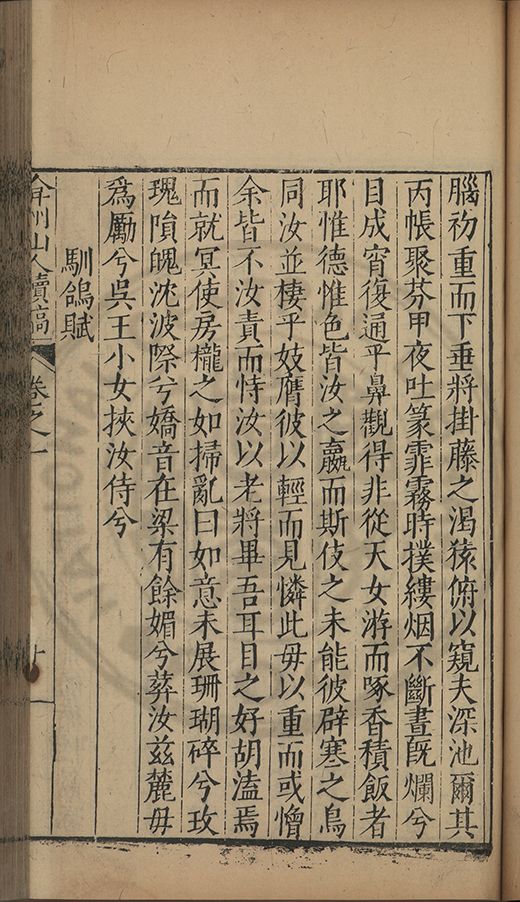 腦初重而下垂將掛藤之渴猿俯以窺夫深池爾其
丙帳聚芬甲夜吐篆霏霧時撲縷烟不斷晝旣爛兮
目成宵復通乎鼻觀得非從天女游而啄香積飯者
耶惟德惟色皆汝之嬴而斯伎之未能彼辟寒之鳥
同汝並棲乎妓膺彼以輕而見憐此毋以重而或憎
余皆不汝責而恃汝以老將畢吾耳目之好胡溘焉
而就冥使房櫳之如掃亂曰如意未展珊瑚碎兮玫
瑰隕魄沈波際兮嬌音在梁有餘媚兮葬汝茲麓毋
為厲兮吳王小女挾汝侍兮
馴鴿賦
弇州山人續稿
卷之一
十